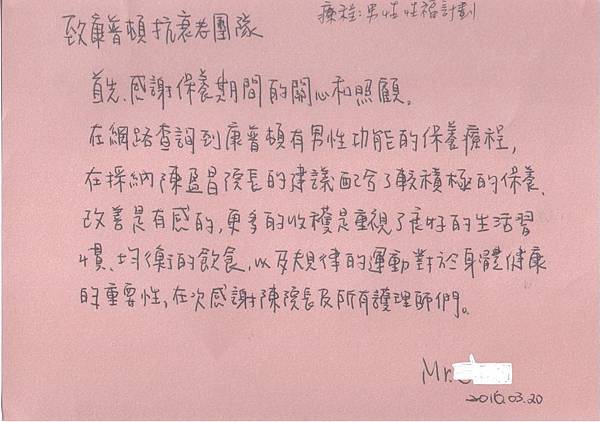 療程:男性性福計劃
致康普頓抗衰老團隊
首先、感謝保養期間的關心和照顧。
在網路查詢到康普頓有男性功能的保養療程,
在採納陳盈昌院長的建議配合了較積極的保養、
改善是有感的,更多的收穫是重視了良好的生活習
慣、均衡的飲食、以及規律的運動對於身體健康
的重要性,在次感謝陳院長及所有護理師們。
Mr.
2016.03.20